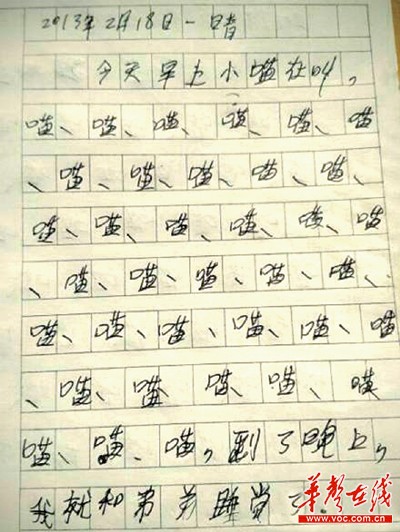 2013年2月18日一晴
今天早上小喵在叫,
喵、喵、喵、喵、喵、喵
、喵、喵、喵、喵、喵、
喵、喵、喵、喵、喵、喵
、喵、喵、喵、喵、喵、
喵、喵、喵、喵、喵、喵
、喵、喵 喵、喵、喵
喵、喵、喵,到了晚上,
我就和弟弟睡觉了.
华声在线
www.voc.com.cn